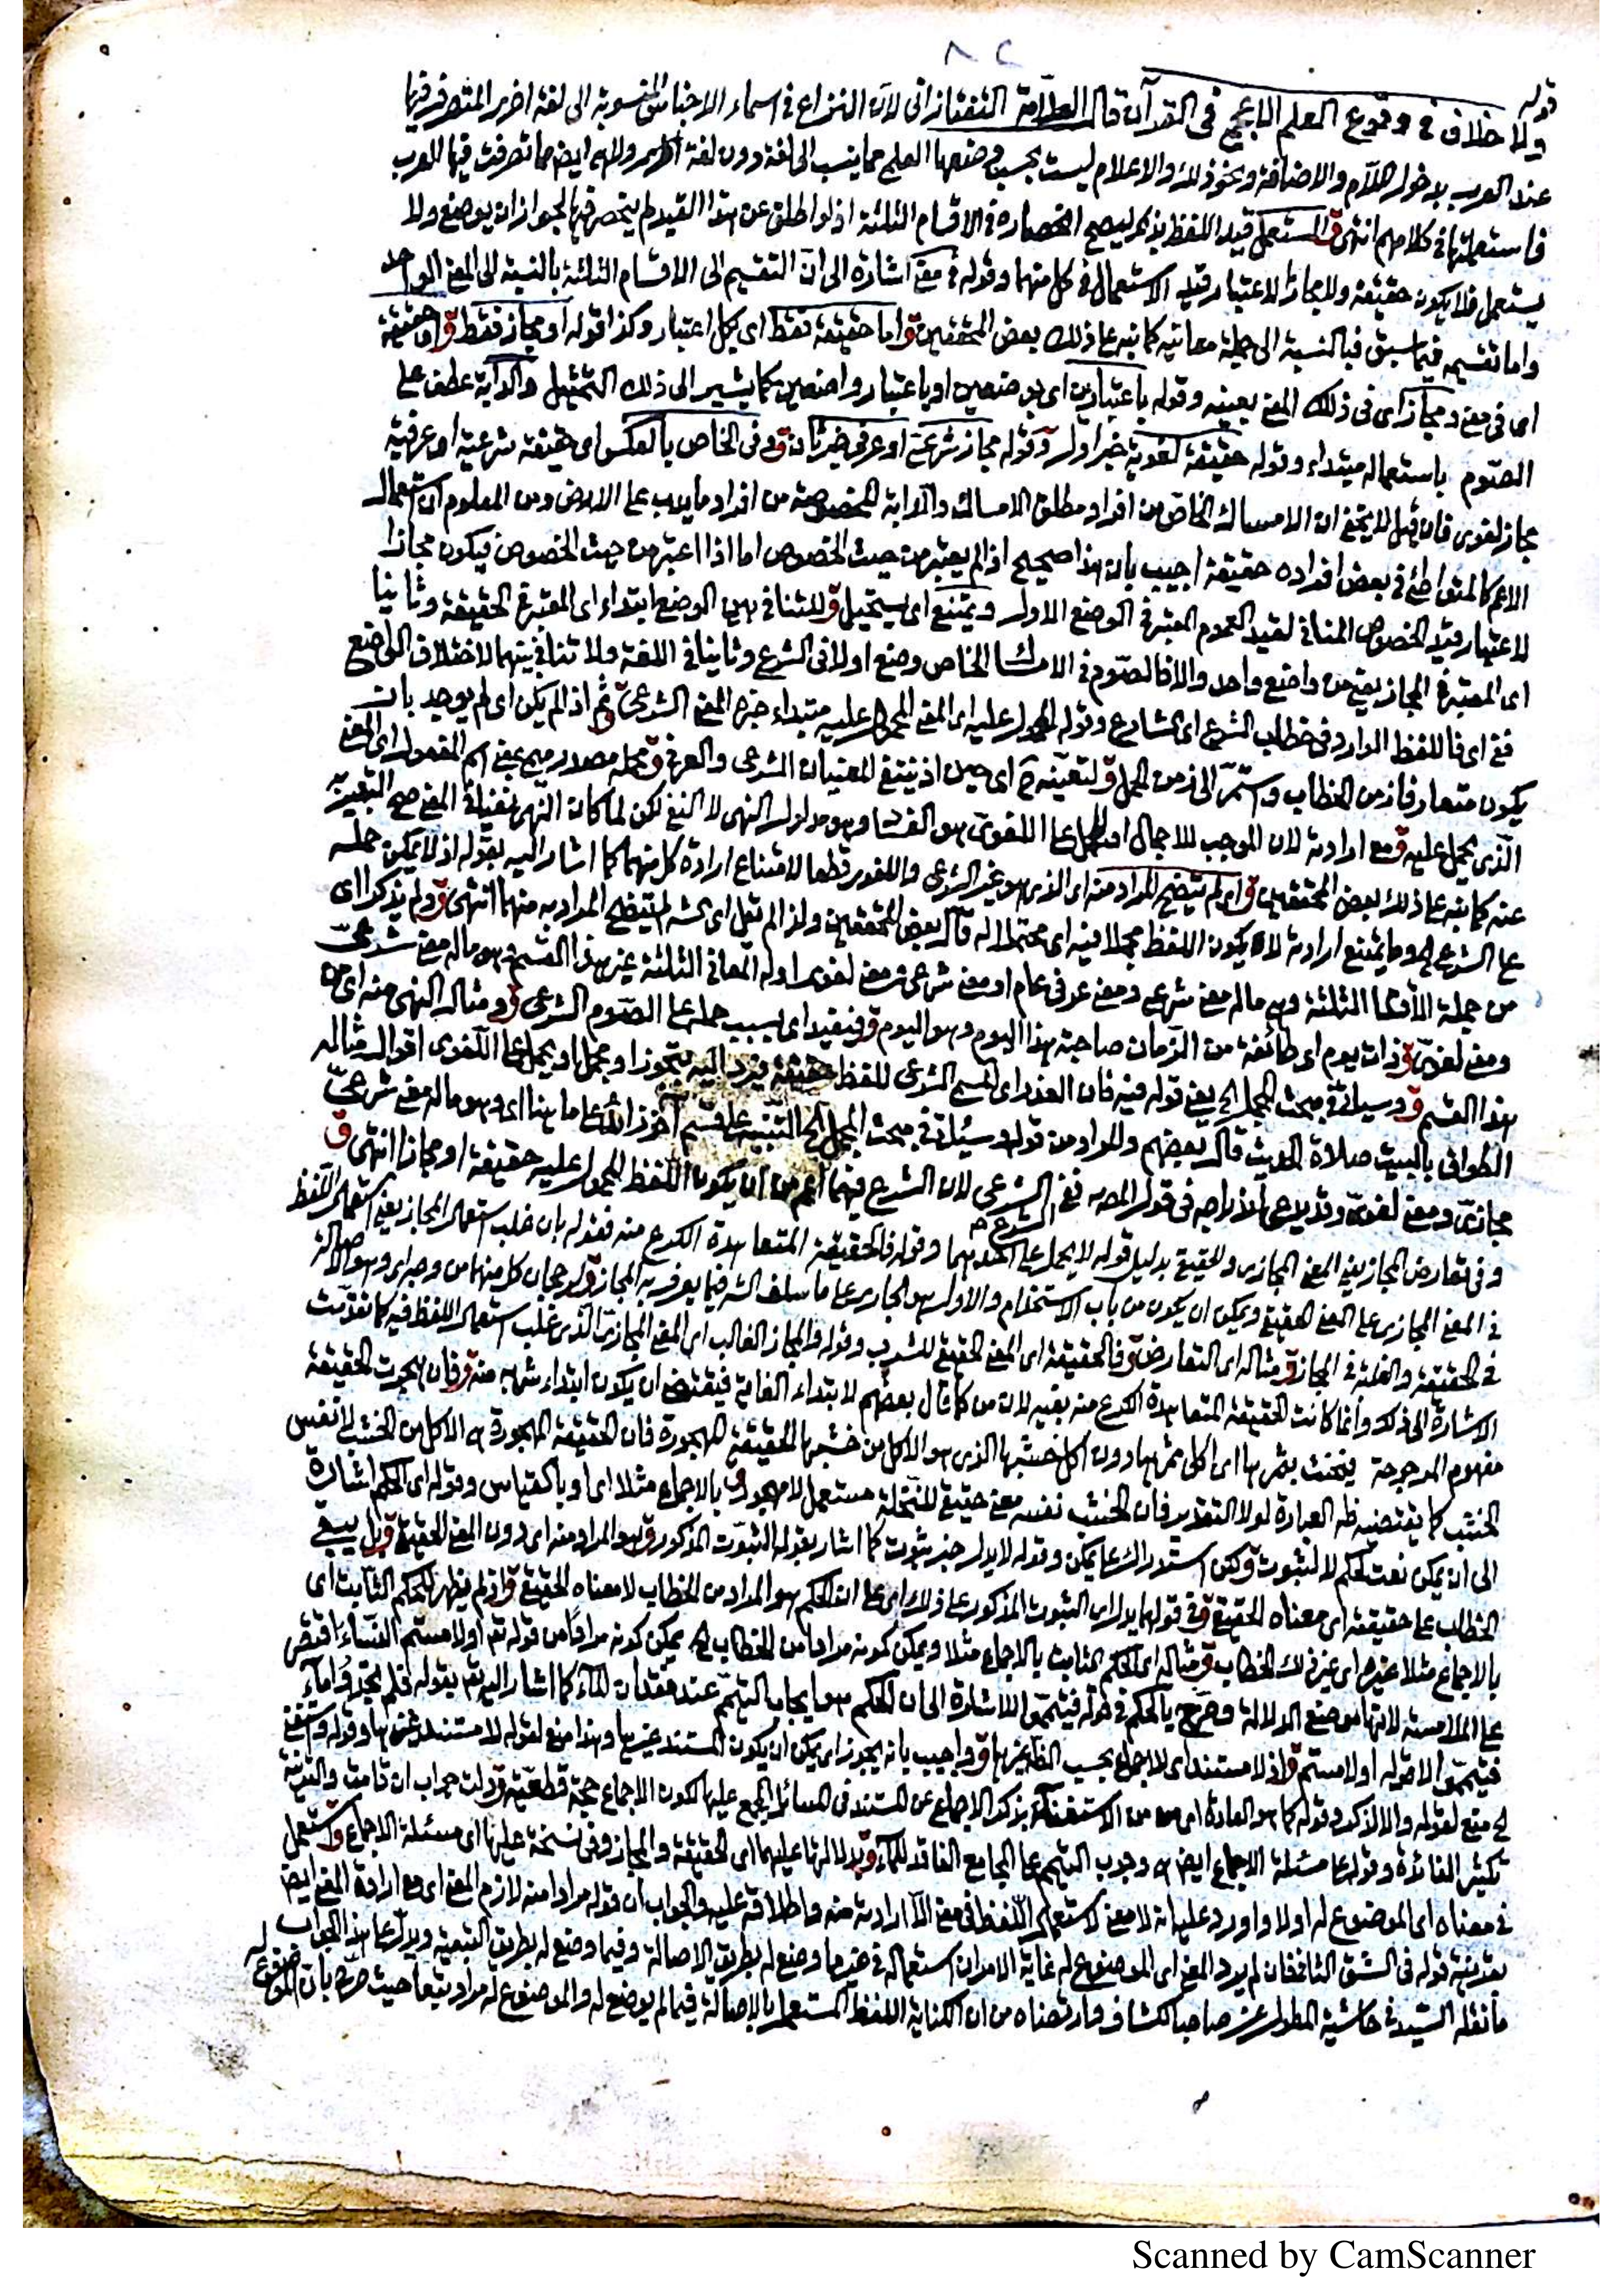 ٨٢
قوله
ولا خلاف في وقوع العلم الاعجمي في القرآن قال العلامة التفتازاني لان النزاع في اسماء الاجناس المنسوبة الى لغة اخرى المتصرف فيها
عند العرب بدخول اللام والاضافة ونحو ذلك والاعلام ليست بحسب وضعها العلمي مما ينسب الى لغة دون لغة اخرى ولا هي ايض مما تصرفت فيها العرب
فاستعملتها في كلامهم انتهى ق المستعمل قيد اللفظ بذكر ليصح انحصاره في الاقسام الثلثة اذ لو اطلق عن هذا القيد لم ينحصر فيها لجواز ان يوضع ولا
يستعمل فلا يكون حقيقة ولا مجازا لاعتبار قيد الاستعمال في كل منهما وقوله في معنى اشارة الى ان التقسيم الى الاقسام الثلثة بالنسبة الى المعنى الواحد
واما تقسيمه فيما سبق فبالنسبة الى جملة معانيه كما نبه على ذلك بعض المحققين ق اما حقيقة فقط اى بكل اعتبار وكذا قوله او مجاز فقط ق او حقيقة
اى في معنى ومجاز اى في ذلك المعنى بعينه وقوله باعتبارين اى بوضعين او باعتبار واضعين كما يشير الى ذلك التمثيل والدابة عطف على
الصوم باستعماله مبتداء وقوله حقيقة لغوية خبر اول وقوله مجاز شرعى او عرفى خبر ثان ق وفى الخاص بالعكس اى حقيقة شرعية او عرفية
مجاز لغوى فان قيل لا يخفى ان الامساك الخاص من افراد مطلق الامساك والدابة المخصوصة من افراد ما يدب على الارض ومن المعلوم ان استعمال
الاعم كالمتواطئ في بعض افراده حقيقة اجيب بان هذا صحيح اذ لم يعتبر من حيث الخصوص اما اذا اعتبر من حيث الخصوص فيكون مجازا
لاعتبار قيد الخصوص المنافى لقيد العموم المعتبر في الوضع الاول ويمتنع اى يستحيل ق للتنافى بين الوضع ابتداء اى المعتبر في الحقيقة وثانيا
اى المعتبر في المجاز يعنى من واضع واحد والا فالصوم في الامساك الخاص وضع اولا فى الشرع وثانيا في اللغة ولا تنافى بينهما لاختلاف الواضع
ففى اى فاللفظ الوارد فى خطاب الشرع اى الشارع وقوله المحمول عليه اى المعنى المحمول عليه مبتداء خبره المعنى الشرعى ق ثم اذ لم يكن اى لم يوجد بان
يكون متعارفا زمن الخطاب واستمر الى زمن الحمل ق لتعينه ح اى حين اذ ينتفى المعنيان الشرعى والعرفى ق محمله مصدر ميمى بمعنى اسم المفعول اى المعنى
الذى يحمل عليه ق مع ارادته لان الموجب للاجمال او الحمل على اللغوى هو الفساد وهو مدلول النهى لا النفى لكن لما كان النهى نفيا في المعنى صح التعبير به
عنه كما نبه على ذلك بعض المحققين ق اى لم يتضح المراد منه اى الذى هو غير الشرعى واللغوى قطعا لامتناع ارادة كل منهما كما اشار اليه بقوله اذ لا يمكن حمله
على الشرعى وما يمتنع ارادته لا يكون اللفظ مجملا فيه اى محتملا له قال بعض المحققين ولذا لم يقل اى الش لم يتضح المراد به منهما انتهى ق ولم يذكروا اى
من جملة الاقسام الثلثة وهى ماله معنى شرعى ومعنى عرفى عام او معنى شرعى ومعنى لغوى او له المعانى الثلثة غير هذا القسم وهو ماله معنى شرعى
ومعنى لغوى ق ذات يوم اى طائفة من الزمان صاحبة هذا اليوم وهو اليوم ق فيفيد اى بسبب حمله على الصوم الشرعى ق ومثال النهى منه اى من
هذا القسم ق وسيأتى في مبحث المجمل الخ يعنى قوله فيه فان تعذر اى المسمى الشرعى للفظ حقيقة فيرد اليه بتجوز او مجمل او يحمل على اللغوى اقوال مثاله
الطواف بالبيت صلاة الحديث قال بعضهم والمراد من قوله وسيأتى في مبحث المجمل الخ التنبيه على قسم اخر زائد على ما هنا اى وهو ماله معنى شرعى
مجازى ومعنى لغوى وقد يدعى اندراجه فى قول المصه ففى الشرع الشرعى لان الشرعى فيهما اعم من ان يكون اللفظ المحمول عليه حقيقة او مجازا انتهى ق
وفى تعارض المجاز يعنى المعنى المجازى والحقيقى بدليل قوله لا يحمل على احدهما وقوله فالحقيقة المتعاهدة الكرع منه فقوله بان غلب استعمال المجاز يعنى استعمال اللفظ
في المعنى المجازى على المعنى الحقيقى ويمكن ان يكون من باب الاستخدام والاول هو الجارى على ما سلف الش فيما يعرف به المجاز ق لرجحان كل منهما من وجه اى وهو الاصالة
فى الحقيقة والغلبة في المجاز ق مثاله اى التعارض ق فالحقيقة اى المعنى الحقيقى للشرب وقوله والمجاز الغالب اى المعنى المجازى الذى غلب استعمال اللفظ فيه كما تقدمت
الاشارة الى ذلك وانما كانت الحقيقة المتعاهدة الكرع منه بفيه لان من كما قال بعضهم لابتداء الغاية فيقتضى ان يكون ابتداء شربه منه ق فان هجرت الحقيقة
مفهوم المرجوحة فيحنث بثمرها اى اكل ثمرها دون اكل خشبها الذى هو الاكل من خشبها الحقيقة المهجورة فان الحقيقة المهجورة هى الاكل من الخشب لا نفس
الخشب كما يقتضيه ظه العبارة لولا التقدير فان الخشب نفسه معنى حقيقى للنخلة مستعمل لا مهجور ق بالاجماع مثلا اى او باقتباس وقوله اى الحكم اشارة
الى ان يمكن نعت لحكم لا لثبوت ق ولكن استدراك على يمكن وقوله لا يدل خبر ثبوت كما اشار بقوله الثبوت المذكور ق هو المراد منه اى دون المعنى الحقيقى ق بل يبقى
الخطاب على حقيقته اى معناه الحقيقى ق في قولهما يدل اى الثبوت المذكور على ذلك اى على ان الحكم هو المراد من الخطاب لا معناه الحقيقى ق اذ لم يظهر للحكم الثابت اى
بالاجماع مثلا غيره اى غير ذلك الخطاب ق مثاله اى الحكم الثابت بالاجماع مثلا ويمكن كونه مرادا من الخطاب الخ يمكن كونه مرادا من قوله تعالى او لامستم النساء اقتصر
على الملامسة لانها موضع الدلالة وصرح بالحكم في قوله فتيمموا للاشارة الى ان الحكم هو ايجاب التيمم عند فقدان الماء كما اشار اليه تعالى بقوله فلم تجدوا ماء
فتيمموا لا قوله او لامستم ق اذ لا مستند اى للاجماع بحسب الظاهر غيرها ق واجيب بانه يجوز اى يمكن ان يكون المستند غيرها وهذا منع لقوله لا مستند غيرها وقوله واستغنى
الخ منع لقوله والا لذكر وقوله كما هو العادة اى من الاستغناء بذكر الاجماع عن المستند في المسائل المجمع عليها لكون الاجماع حجة قطعية ق دلت جواب ان قامت والقرينة
تكثير الفائدة وقوله على مسئلة الاجماع ايض هى وجوب التيمم على الجامع الفاقد للماء ق بدلالتها عليهما اى الحقيقة والمجاز وفى نسخة عليها اى مسئلة الاجماع ق استعمل
في معناه اى الموضوع له اولا واورد عليه انه لا معنى لاستعمال اللفظ في معنى الا ارادته منه واطلاقه عليه والجواب ان قوله مرادا منه لازم المعنى اى مع ارادة المعنى ايض
بقرينة قوله فى الشق الثانى فان لم يرد المعنى اى الموضوع له غاية الامر ان استعماله في غير ما وضع له بطريق الاصالة وفيما وضع له بطريق التبعية ويدل على هذا الجواب
ما نقله السيد في حاشية المطول عن صاحب الكشاف وارتضاه من ان الكناية اللفظ المستعمل بالاصالة فيما لم يوضع له والموضوع له مراد تبعا حيث صرح بان الموضوع له
Scanned by CamScanner